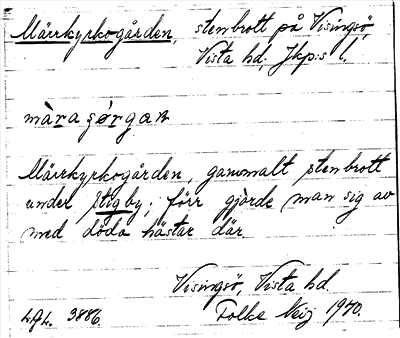 Märrkyrkogården, stenbrott på Visingsö,
Vista hd, Jkp:s l.
màra ʂø̀rgaɴ
Märrkyrkogården, gammalt stenbrott
under Stigby; förr gjorde man sig av
med döda hästar där.
Visingsö, Vista hd.
3886. Folke 1970.